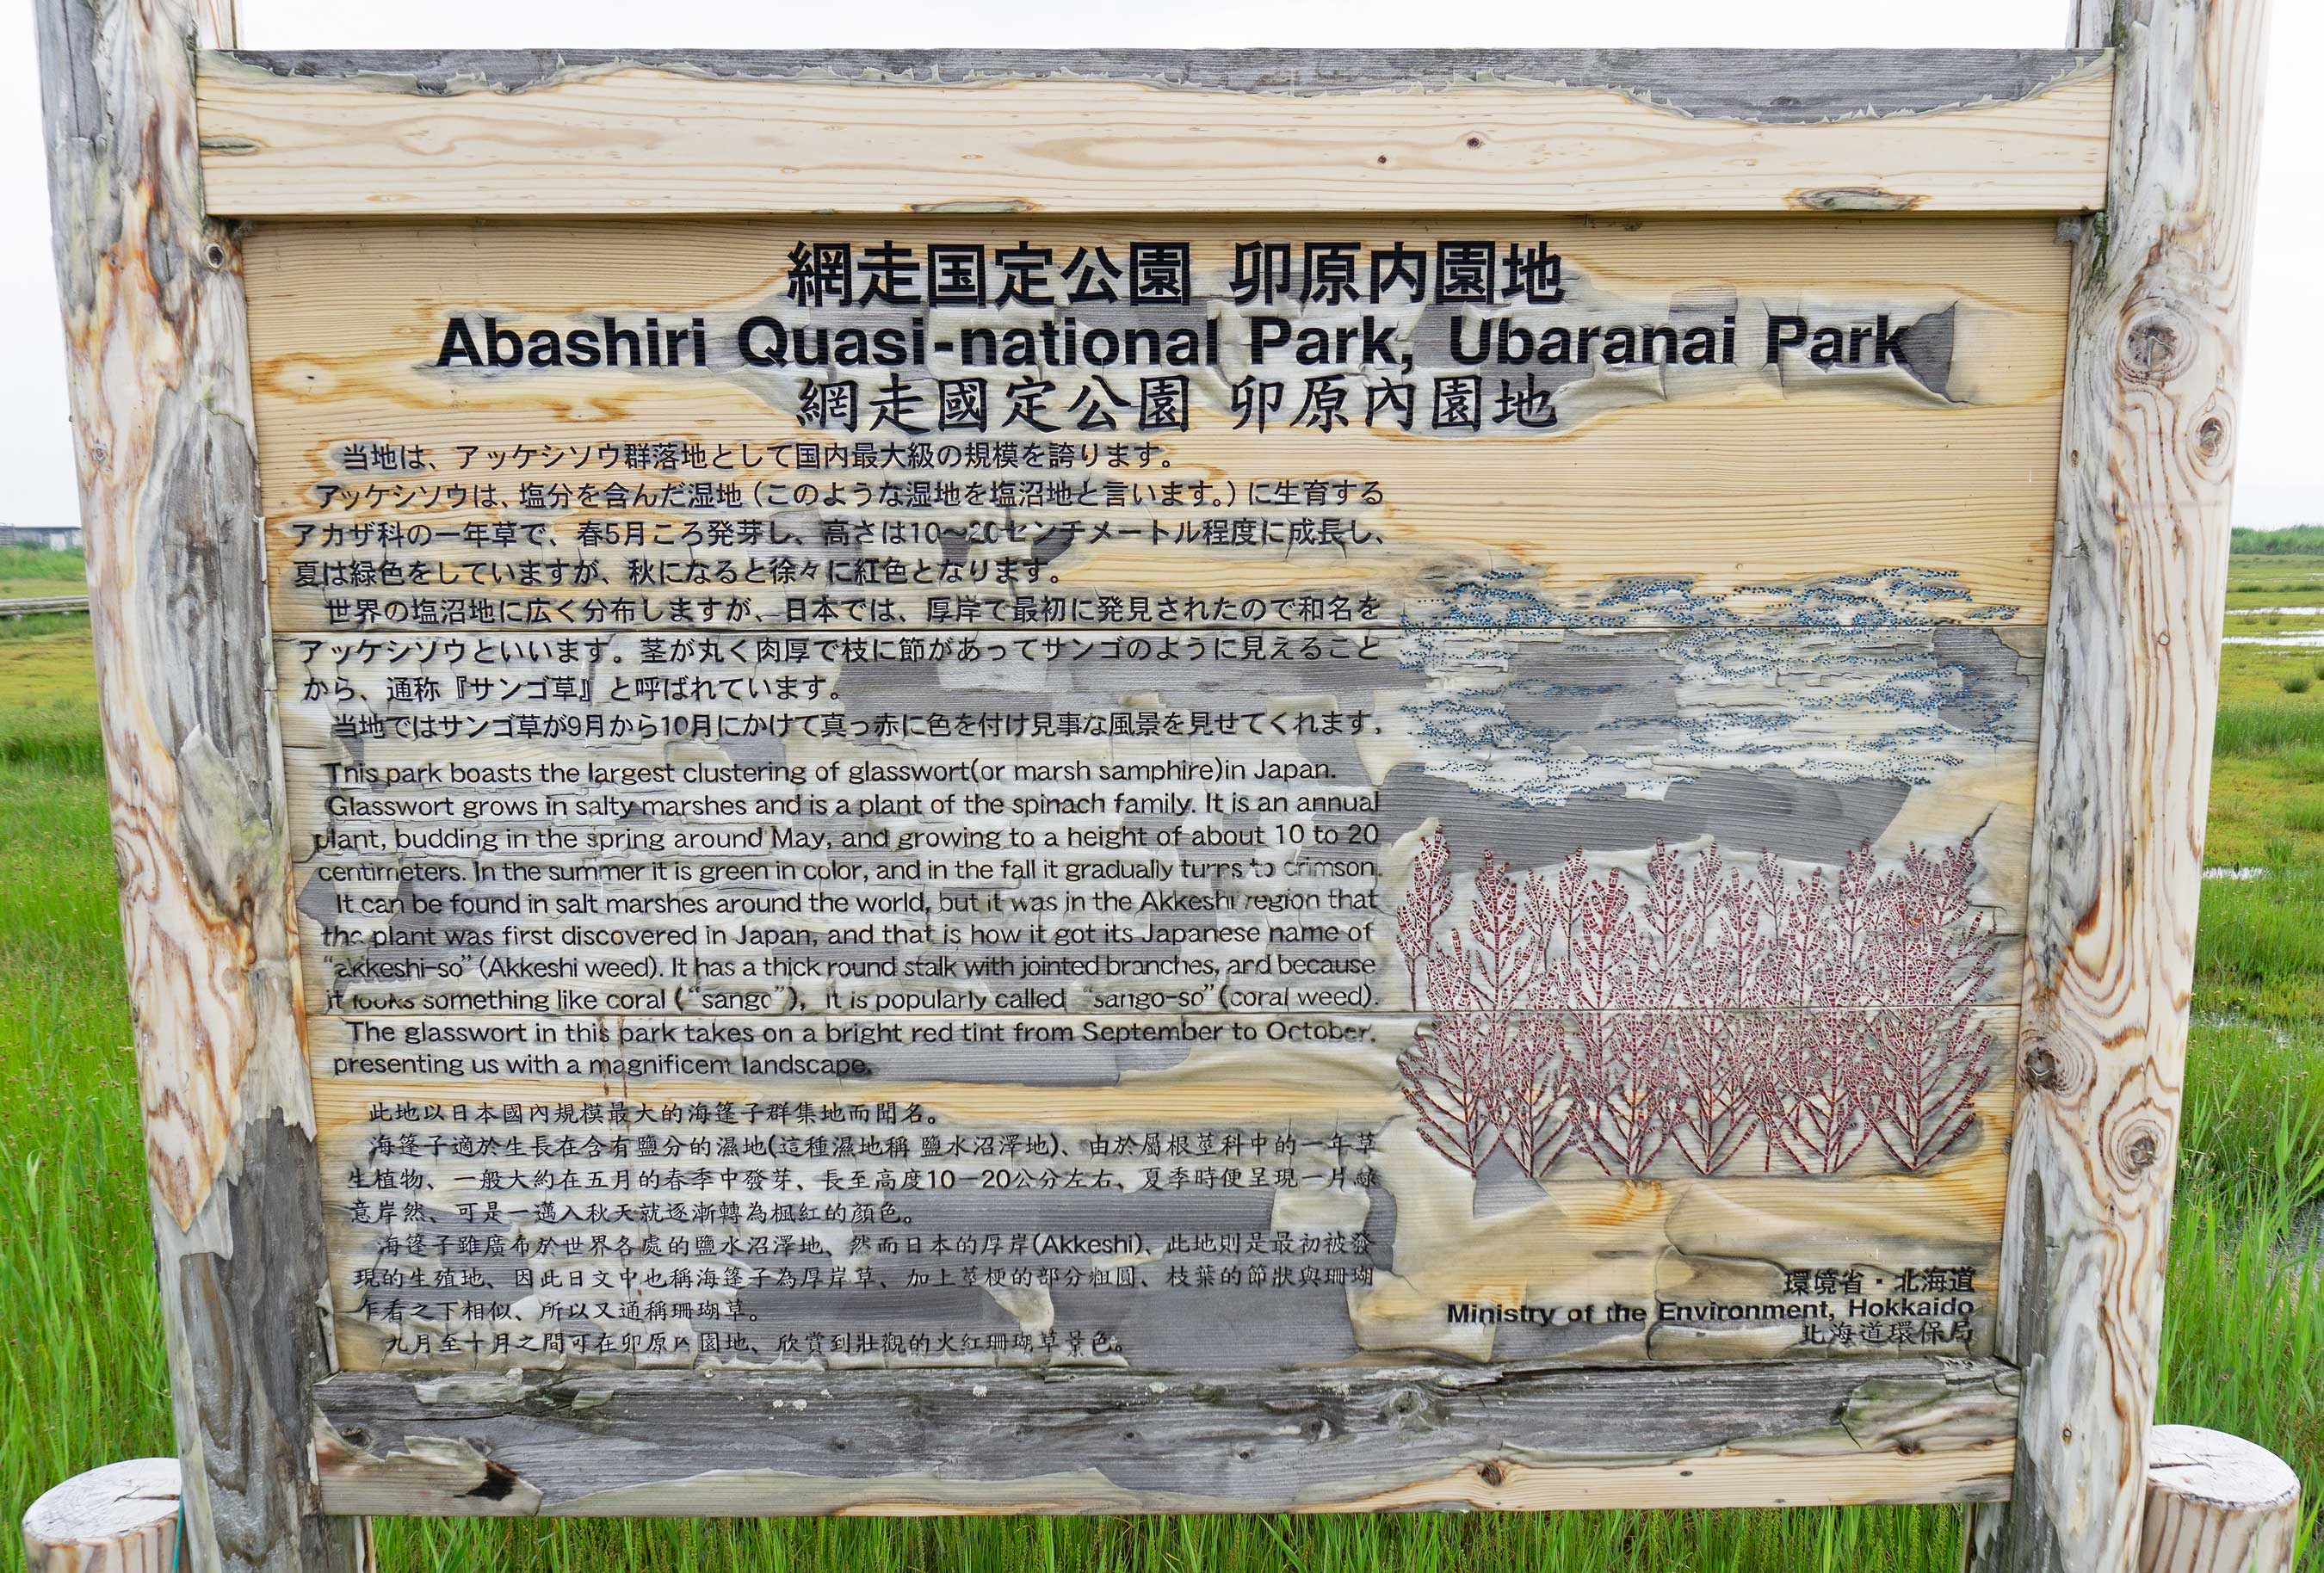 網走国定公園 卯原内園地
Abashiri Quasi-national Park, Ubaranai Park
網走國定公園 卯原內園地
当地は、アッケシソウ群落地として国内最大級の規模を誇ります。
アッケシソウは、塩分を含んだ湿地（このような湿地を塩沼地と言います。）に生育する
アカザ科の一年草で、春5月ころ発芽し、高さは10～20センチメートル程度に成長し、
夏は緑色をしていますが、秋になると徐々に紅色となります。
世界の塩沼地に広く分布しますが、日本では、厚岸で最初に発見されたので和名を
アッケシソウといいます。茎が丸く肉厚で枝に節があってサンゴのように見えること
から、通称『サンゴ草』と呼ばれています。
当地ではサンゴ草が9月から10月にかけて真っ赤に色を付け見事な風景を見せてくれます。
This park boasts the largest clustering of glasswort(or marsh samphire)in Japan.
Glasswort grows in salty marshes and is a plant of the spinach family. It is an annual
plant, budding in the spring around May, and growing to a height of about 10 to 20
centimeters. In the summer it is green in color, and in the fall it gradually turns to crimson.
It can be found in salt marshes around the world, but it was in the Akkeshi region that
the plant was first discovered in Japan, and that is how it got its Japanese name of
“akkeshi-so” (Akkeshi weed). It has a thick round stalk with jointed branches, and because
it looks something like coral (“sango”), it is popularly called “sango-so”(coral weed).
The glasswort in this park takes on a bright red tint from September to October,
presenting us with a magnificent landscape.
此地以日本國內規模最大的海篷子群集地而聞名。
海篷子適於生長在含有鹽分的濕地(這種濕地稱 鹽水沼澤地)、由於屬根莖科中的一年草
生植物、一般大約在五月的春季中發芽、長至高度10－20公分左右、夏季時便呈現一片綠
意岸然、可是一邁入秋天就逐漸轉為楓紅的顏色。
海篷子雖廣布於世界各處的鹽水沼澤地、然而日本的厚岸(Akkeshi)、此地則是最初被發
現的生殖地、因此日文中也稱海篷子為厚岸草、加上莖梗的部分粗圓、枝葉的節狀與珊瑚
乍看之下相似、所以又通稱珊瑚草。
九月至十月之間可在卯原內園地、欣賞到壯觀的火紅珊瑚草景色。
環境省・北海道
Ministry of the Environment, Hokkaido
北海道環保局